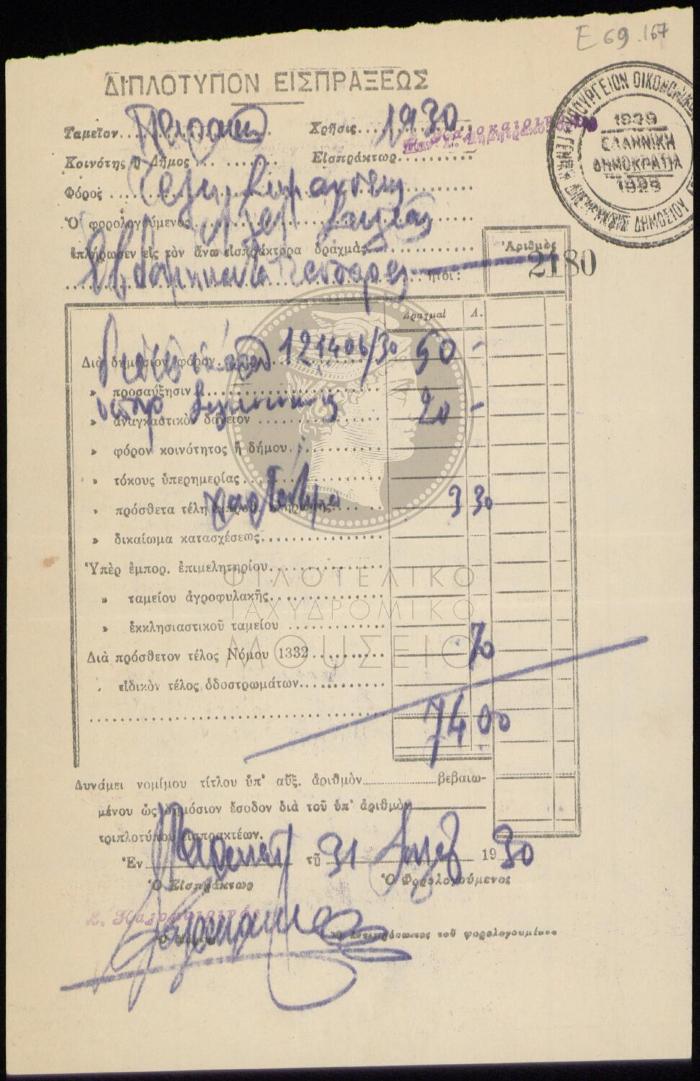 Ε 69.167
ΔΙΠΛΟΤΥΠΟΝ ΕΙΣΠΡΑΞΕΩΣ
ΥΠΟΥΡΓΕΙΟΝ ΟΙΚΟΝΟΜΙΚΩΝ
1929
ΕΛΛΗΝΙΚΗ
ΔΗΜΟΚΡΑΤΙΑ
1929
Ταμεῖον Πειραιῶς Χρῆσις 1930
Κοινότης ἢ Δῆμος Εἰσπράκτωρ
Φόρος
Ὁ φορολογούμενος
ἐπλήρωσεν εἰς τὸν ἄνω εἰσπράκτορα δραχμὰς
Ἑβδομήκοντα τέσσαρες ἤτοι:
Ἀριθμὸς
2180
Δραχμαὶ Λ.
Διὰ δημόσιον φόρον 121406/30 50 -
» προσαύξησιν
» ἀναγκαστικὸν δάνειον 20 -
» φόρον κοινότητος ἢ δήμου
» τόκους ὑπερημερίας
» πρόσθετα τέλη χαρτόσημο 3 30
» δικαίωμα κατασχέσεως
Ὑπὲρ ἐμπορ. ἐπιμελητηρίου
» ταμείου ἀγροφυλακῆς
» ἐκκλησιαστικοῦ ταμείου
Διὰ πρόσθετον τέλος Νόμου 1332 70
» εἰδικὸν τέλος ὁδοστρωμάτων
74 00
ΦΙΛΟΤΕΛΙΚΟ
ΤΑΧΥΔΡΟΜΙΚΟ
ΜΟΥΣΕΙΟ
Δυνάμει νομίμου τίτλου ὑπ' αὔξ. ἀριθμὸν βεβαιω-
μένου ὡς δημόσιον ἔσοδον διὰ τοῦ ὑπ' ἀριθμὸν
τριπλοτύπου εἰσπρακτέων.
Ἐν Πειραιεῖ τῇ 31 1930
Ὁ Εἰσπράκτωρ Ὁ Φορολογούμενος
ἀντιπρόσωπος τοῦ φορολογουμένου